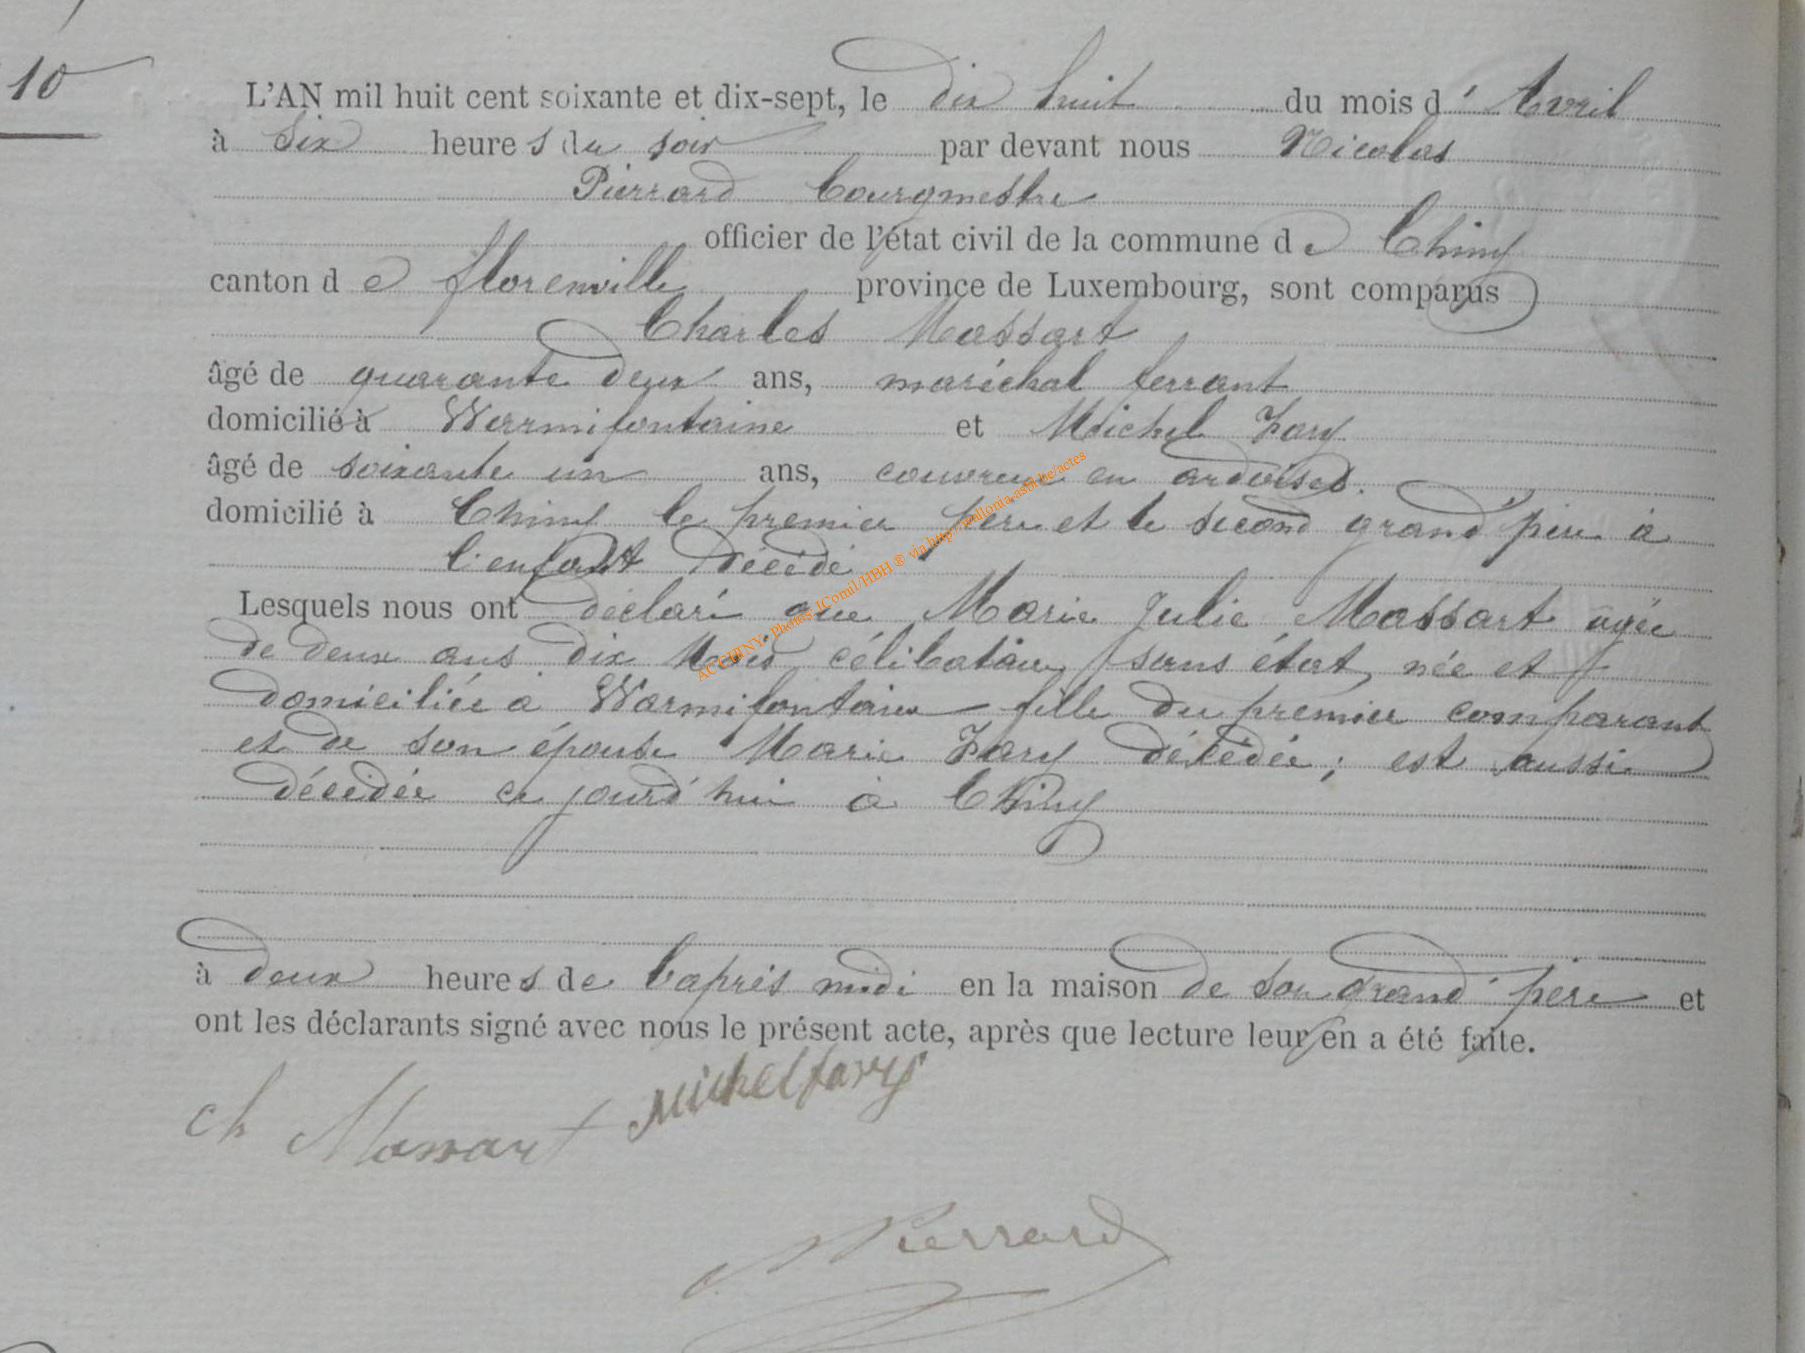 10
L'AN mil huit cent soixante et dix-sept, le dix huit du mois d'Avril
à Six heures du soir par devant nous Nicolas
Pierrard bourgmestre
officier de l'état civil de la commune de Chiny
canton de florenville province de Luxembourg, sont comparus
Charles Massart
âgé de quarante deux ans, maréchal ferrant
domicilié à Warmifontaine et Michel Fary
âgé de soixante un ans, couvreur en ardoises.
domicilié à Chiny le premier père et le second grand'père à
l'enfant décédé
Lesquels nous ont déclaré que Marie Julie Massart agée
de deux ans dix Mois, célibataire, sans état, née et
domiciliée à Warmifontaine fille du premier comparant
et de son épouse Marie Fary décédée; est aussi
décédée ce jourd'hui à Chiny
à deux heures de l'après midi en la maison de son Grand'père et
ont les déclarants signé avec nous le présent acte, après que lecture leur en a été faite.
ch Massart Michel fary
N Pierrard
AC CHINY- Photos IComil/HBH ® via http://wallonia.asbl.be/actes